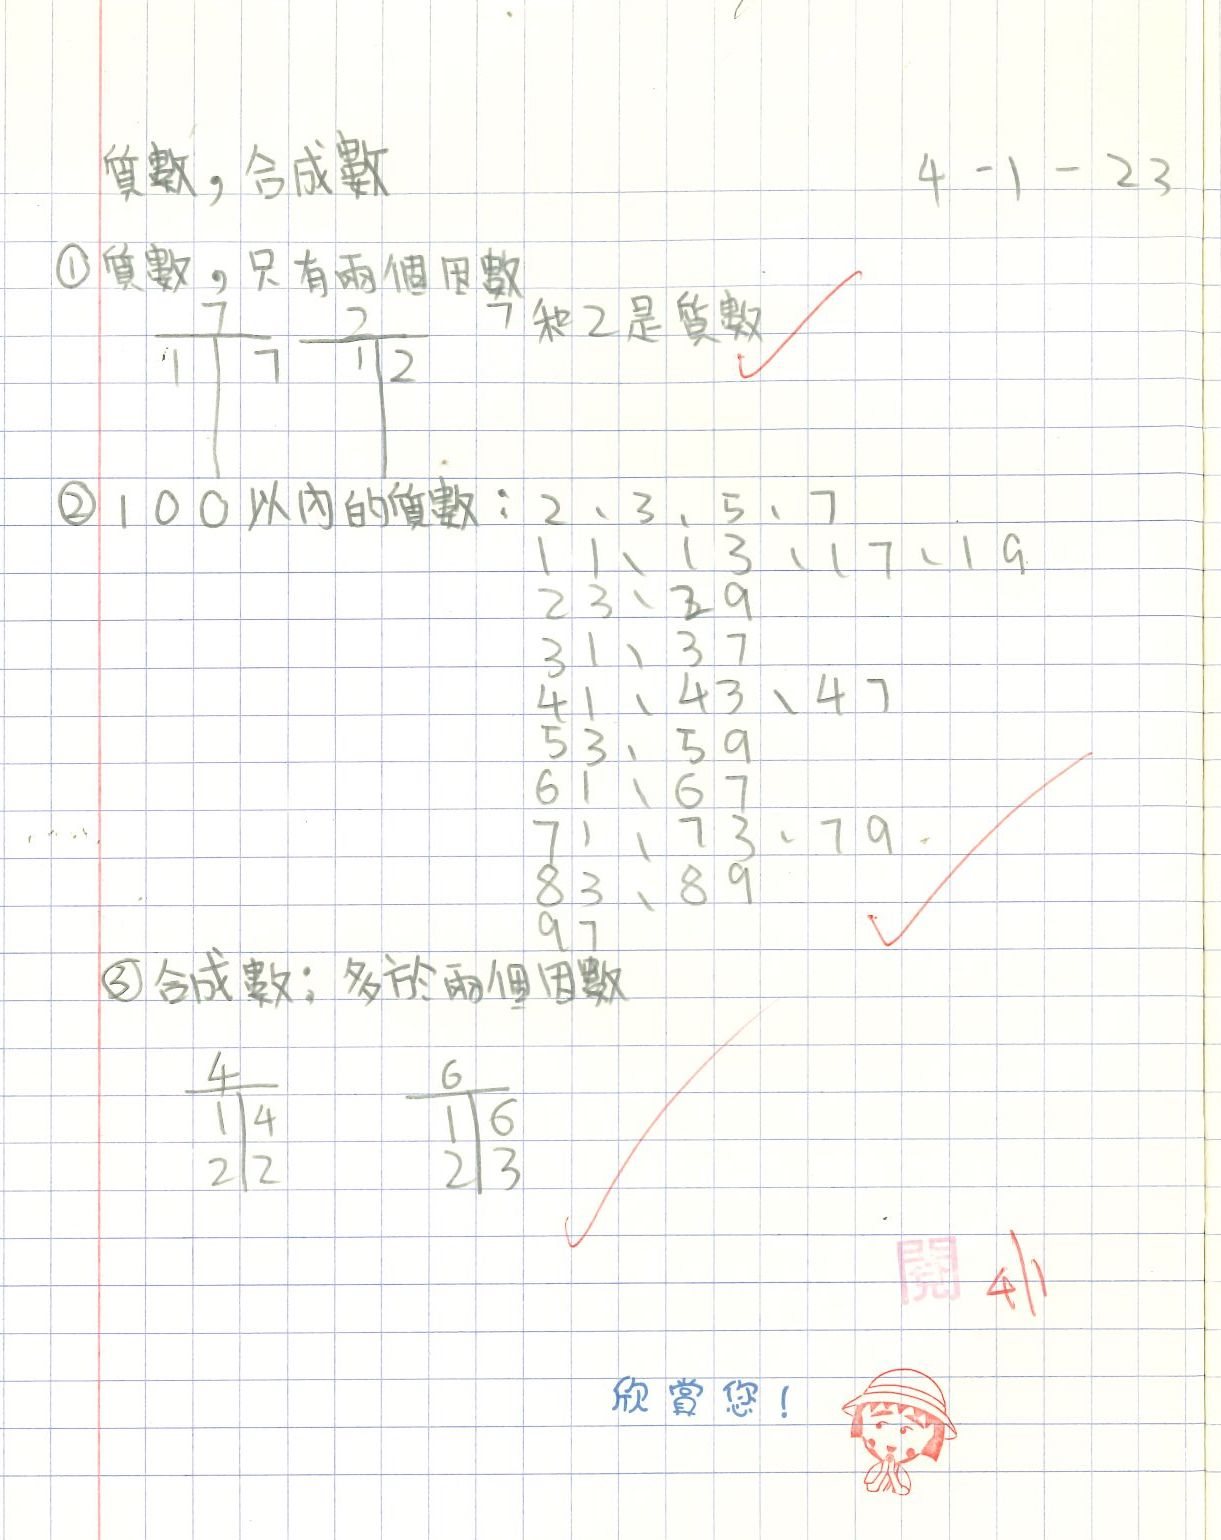 質數，合成數 4-1-23
①質數，只有兩個因數
7 2 7和2是質數
1 7 1 2
②100以內的質數：2、3、5、7
11、13、17、19
23、29
31、37
41、43、47
53、59
61、67
71、73、79
83、89
97
③合成數；多於兩個因數
4 6
1 4 1 6
2 2 2 3
閱 4/1
欣賞您！